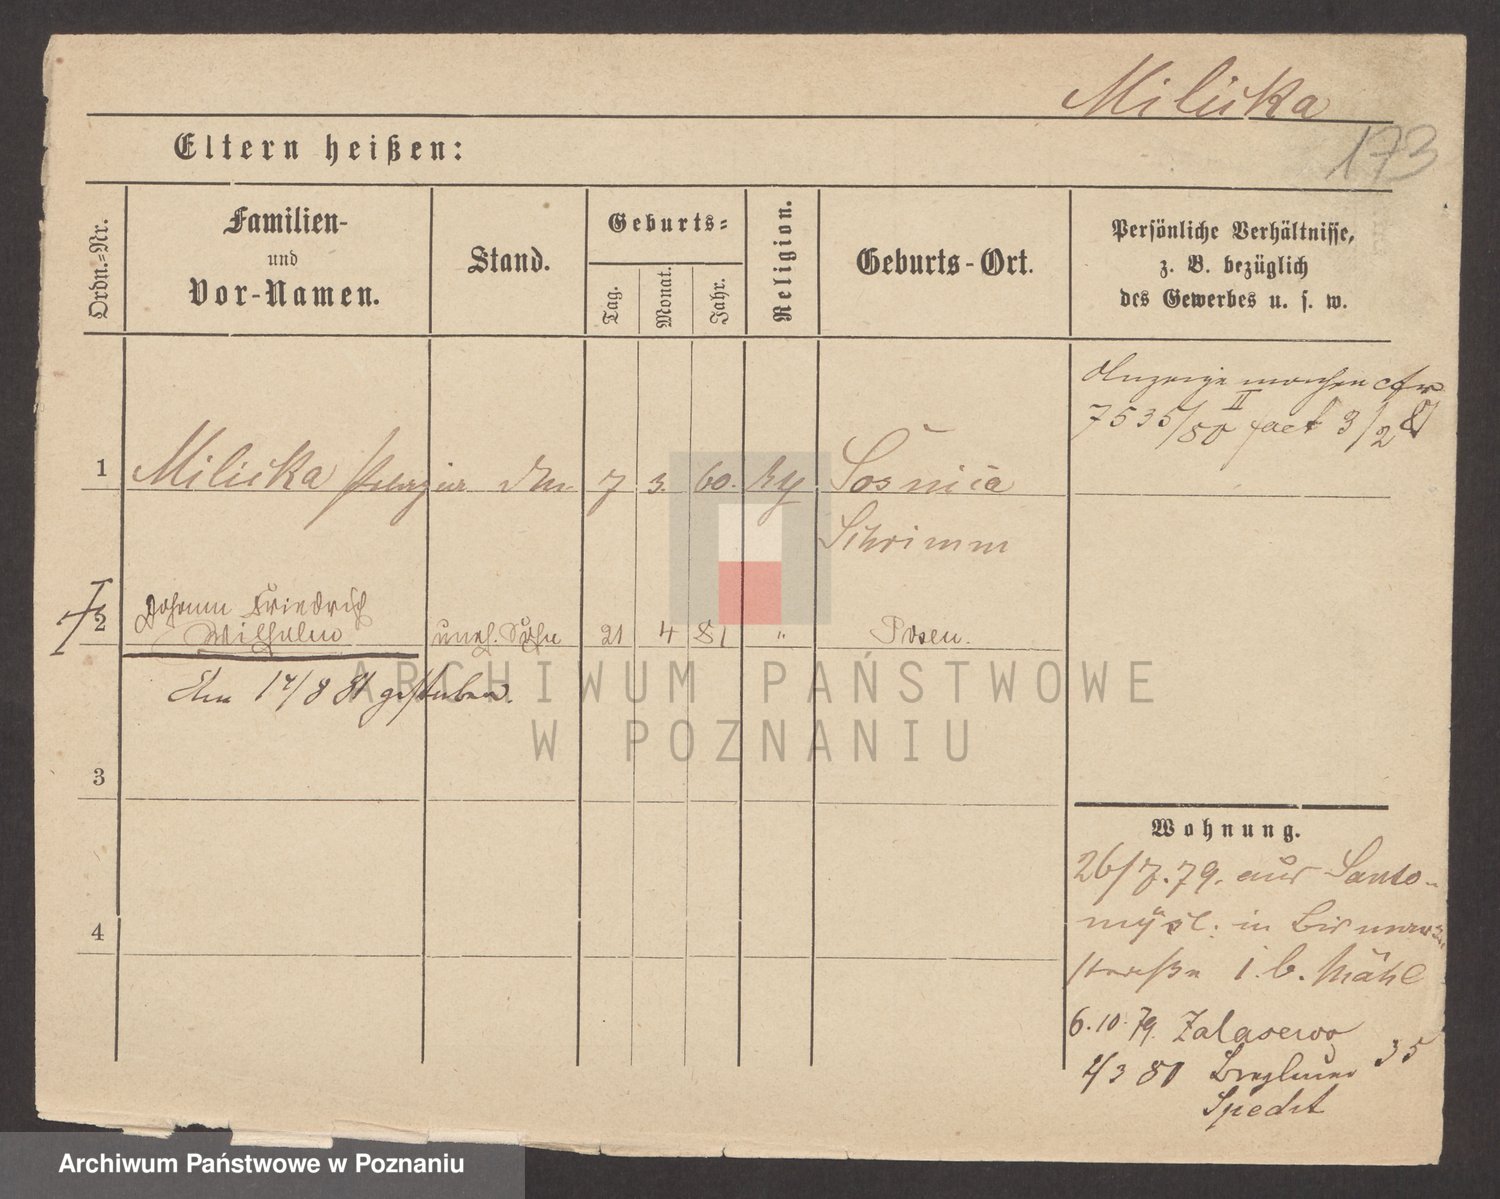 Milicka
173
Eltern heißen:
Ordn.-Nr.
Familien-
und
Vor-Namen.
Stand.
Geburts-
Tag.
Monat.
Jahr.
Religion.
Geburts-Ort.
Persönliche Verhältnisse,
z. B. bezüglich
des Gewerbes u. s. w.
Anzeige machen cfr
II
7535/80 fact 3/2 81
1 Milicka 7 3. 60. Sosnica
Schrimm
2 Johann Friedrich
Wilhelm
uneh. Sohn 21 4 81 " Posen.
17/8 81 gestorben.
3
4
Wohnung.
26/7.79. aus Santo-
mysl. in Bismark
straße 1. b.
6.10.79. Zalasewo
4/3 80 Breslauer 35
Spedit
ARCHIWUM PAŃSTWOWE
W POZNANIU
Archiwum Państwowe w Poznaniu